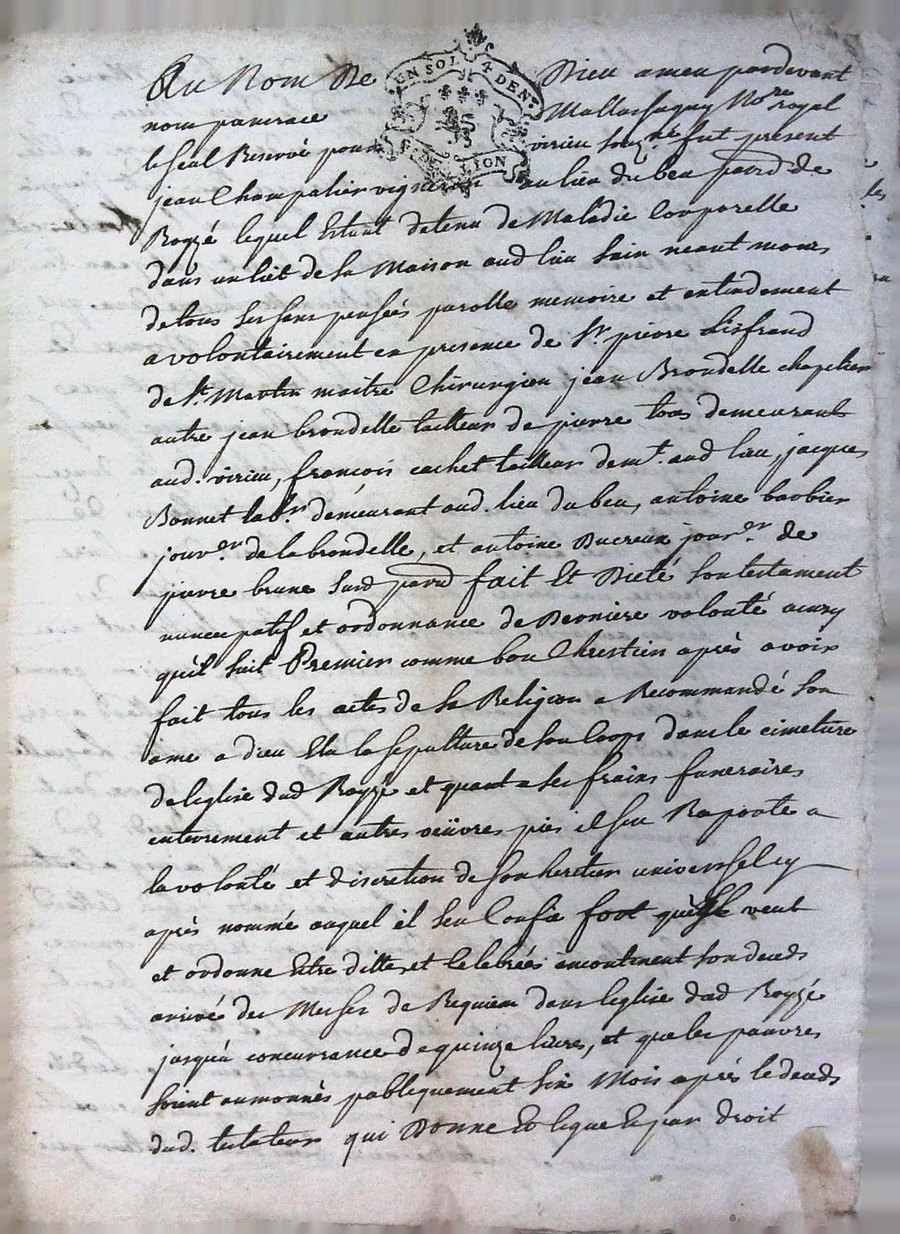 Au Nom De Dieu amen pardevant
nous pancrace Mallassagny No.re royal
le seul Reservé pour virieu soug.né fut present
jean Champalier vigneron au lieu du beu parr.d de
Royzé lequel Estant detenu de Maladie Corporelle
dans un lict de sa Maison aud lieu sain neant moins
de tous ses sens pensées parolle memoire et entendement
a volontairement en presence de S.r pierre Lisfrand
de S.t Martin maitre Chirurgien jean Brondelle chapelier
autre jean brondelle tailleur de pierre tous demeurants
aud. virieu, françois cachet tailleur dem.t aud lieu, jacques
Bonnet lab.r demeurant aud. lieu du beu, antoine barbier
jour.er de la brondelle, et antoine Ducreux jour.er de
pierre brune susd parr.d fait Et Dicté son testament
nuncupatif et ordonnance de Derniere volonté ainsy
qu'il suit Premier comme bon Chrestien après avoir
fait tous les actes de sa Religion a Recommandé son
ame a dieu Elu la sepulture de son Corps dans le cimetiere
de leglise dud Royzé et quant a ses fraix funeraires
enterrement et autres oeüvres pies il sen Raporte a
la volonté et discretion de son heretier universel cy
après nommé auquel il sen Confie fort qu'il veut
et ordonne Estre dittes et Celebrées incontinent son deceds
arrivé des Messes de Requiem dans leglise dud Royzé
jusqu'a concurrance de quinze livres, et que les pauvres
soient aumonnés publiquement six Mois après le deceds
dud. testateur qui Donne Et legue Et par droit
UN SOL 4 DEN.
G. LION